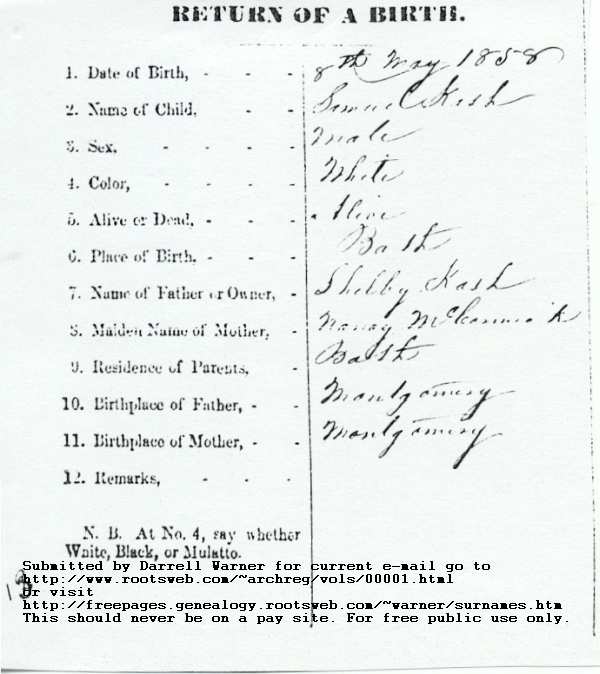 RETURN OF A BIRTH.
1. Date of Birth, - - - 8th May 1858
2. Name of Child, - - Samuel Kash
3. Sex, - - - - Male
4. Color, - - - - White
5. Alive or Dead, - - - Alive
6. Place of Birth, - - - Bath
7. Name of Father or Owner, - Shelby Kash
8. Maiden Name of Mother, - Nancy McCormick
9. Residence of Parents, - Bath
10. Birthplace of Father, - - Montgomery
11. Birthplace of Mother, - - Montgomery
12. Remarks, - - -
N. B. At No. 4, say whether
White, Black, or Mulatto.
Submitted by Darrell Warner for current e-mail go to
http://www.rootsweb.com/~archreg/vols/00001.html
Or visit
http://freepages.genealogy.rootsweb.com/~warner/surnames.htm
This should never be on a pay site. For free public use only.